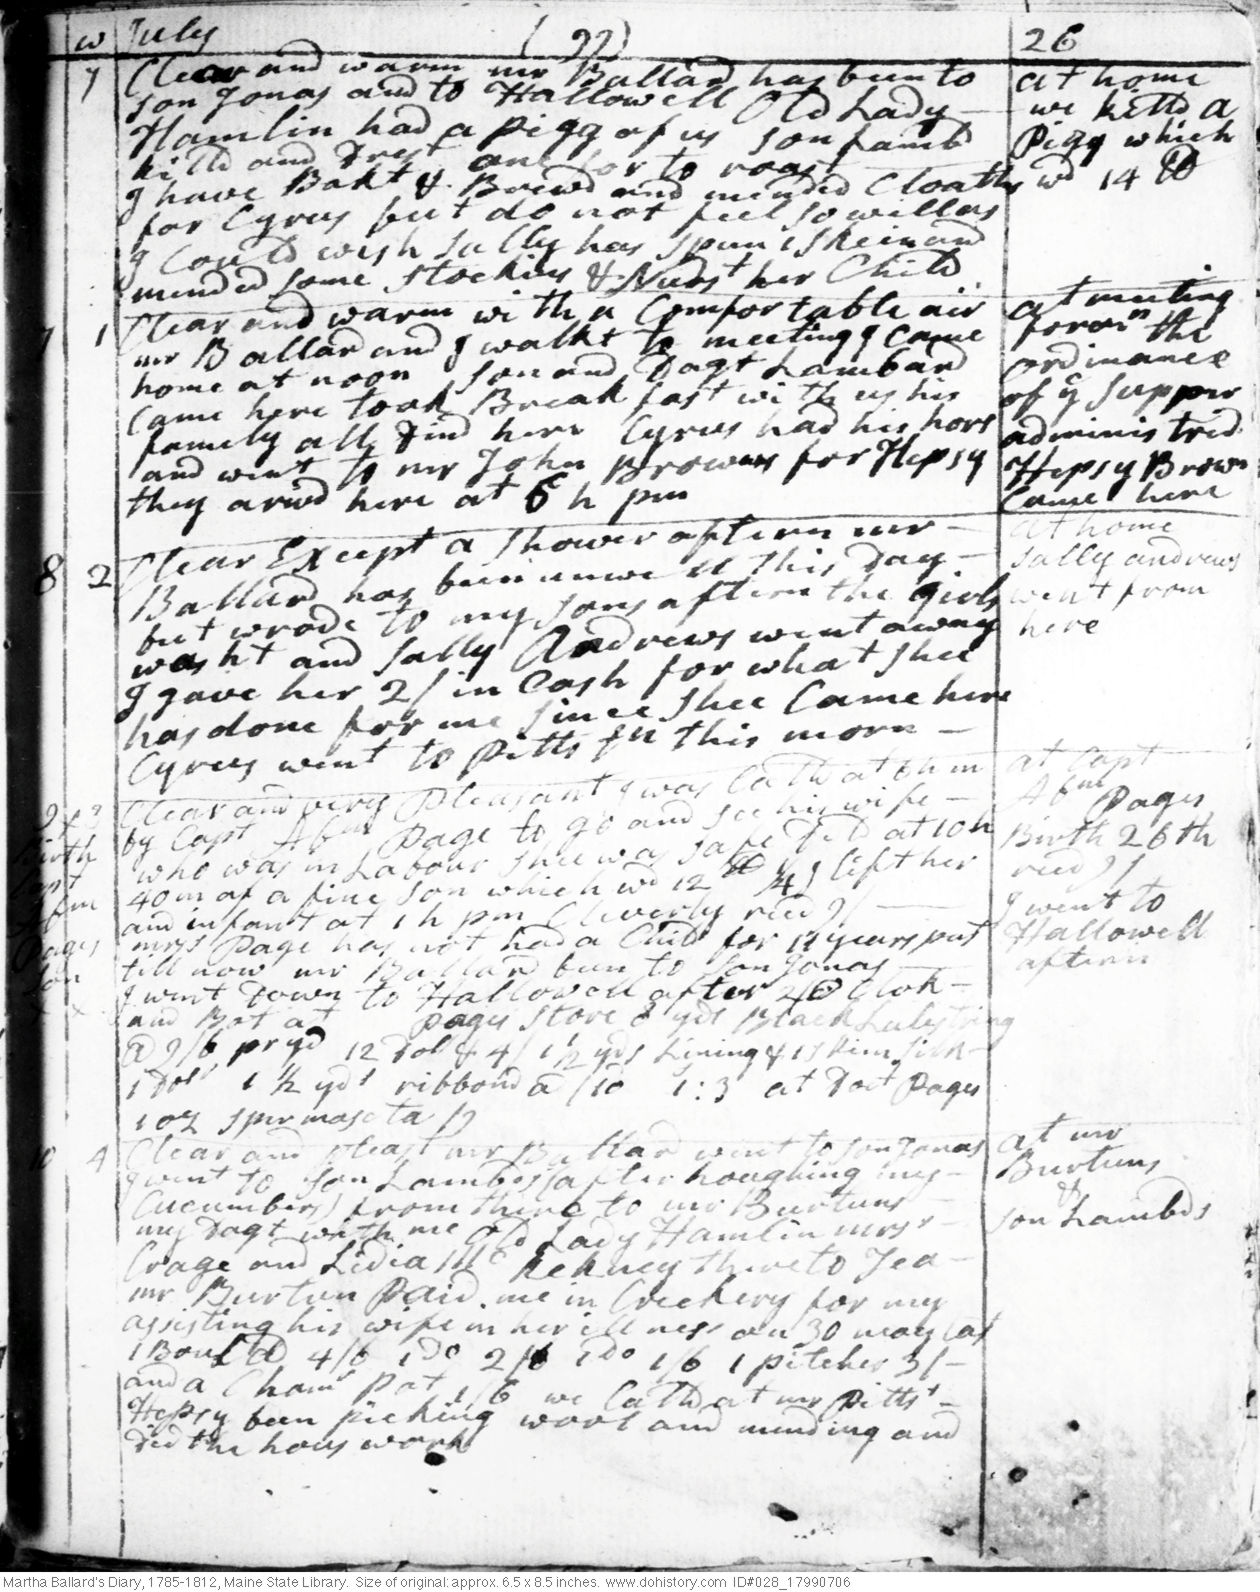 w July (22) 26
7 Clear and warm mr Ballard has been to
son Jonas and to Hallowell Old Lady
Hamlin had a pigg of us son Lambd
killd and Drest one for to roast
I have Bakt & Brewd and mended Cloaths
for Cyrus but do not feel so well as
I Could wish Sally has spun 1 skein and
mended some stockins & Nurst her Child
at home
we killd a
Pigg which
wd 14 lb
7 1 Clear and warm with a Comfortable air
mr Ballard and I walkt to meeting I came
home at noon son and Dagt Lambard
Came here took Break fast with us his
family all dind here Cyrus had his hors
and went to mr John Browns for Hepsy
they arivd here at 6 h pm
at meeting
foren the
ordinance
of ye supper
administred
Hepsy Brown
Came here
8 2 Clear Except a shower aftern mr
Ballard has been unwell this Day
but wrode to my sons aftern the girls
washt and Sally Andrews went away
I gave her 2/ in Cash for what shee
has done for me since shee Came here
Cyrus went to Pitts in this morn
at home
Sally andrews
went from
here
9 3 Clear and very Pleasant I was Calld at 6 h m
by Capt Abm Page to go and see his wife
who was in Labour shee was safe Dld at 10 h
40 m of a fine son which wd 12 lb 1/4 I left her
and infant at 1 h pm Cleverly recd 9/
mrss Page has not had a Child for 11 years past
till now mr Ballard been to son Jonas
I went Down to Hallowell after 2 Clok
and Bot at Pages Store 8 yds Black Lutestring
@ 9/6 pr yd 12 Dolr & 4/ 1 1/2 yds Lining & 1 skein silk
1 Dolr 1 1/2 yds ribbond @ /10 1:3 at Doct Pages
1 oz spermaseta /9
Birth
Capt
Abm
Pages
son
x x
at Capt
Abm Pages
Birth 26th
recd 9/
I went to
Hallowell
aftern
10 4 Clear and pleast mr Ballard went to son Jonas
I went to son Lambds (after houghing my
Cucumbers) from there to mr Burtuns
my Dagt with me Old Lady Hamlin mrss
Crage and Lidia there to Tea
mr Burtun Paid me in Crockery for my
assisting his wife in her illness on 30 may last
1 Boul @ 4/6 1 Do 2/ 1 Do 1/6 1 pitcher 3/
and a Chamr Pot 1/6 we Calld at mr Pitts
Hepsy been picking wool and mending and
Did the hous work
at mr
Burtuns
&
son Lambds
Martha Ballard's Diary, 1785-1812, Maine State Library. Size of original: approx. 6.5 x 8.5 inches. www.dohistory.com ID#028_17990706